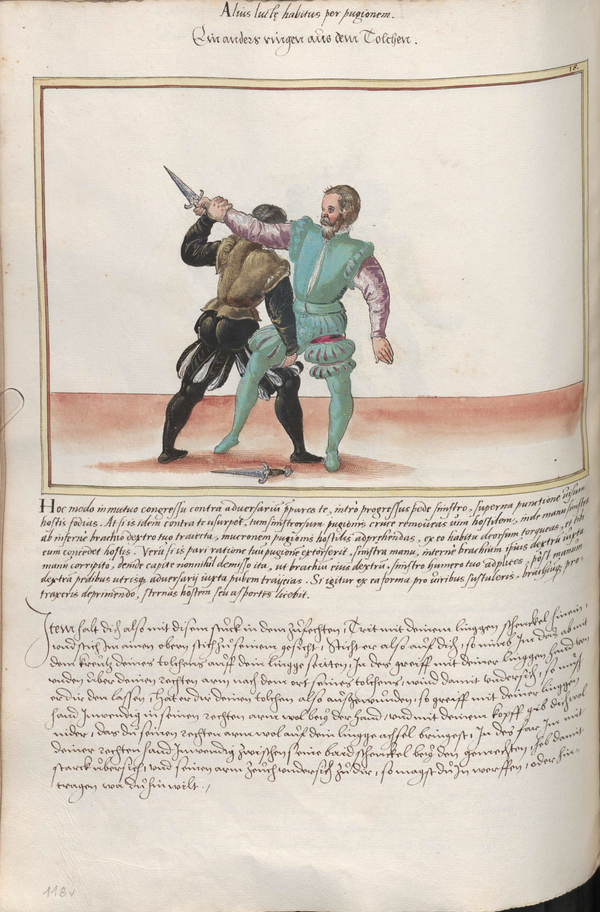 Alius luctę habitus per pugionem.
Ein anders ringen aus dem Tolchen.
18.
Hoc modo in mutuo congressu contra adversariū ppares te, intrò progressus pede sinistro, superna punctione visum
hostis fodias. At si is idem contra te usurpet, tum sinistrorsum pugionis cruce removeas vim hostilem, inde manu sinistra
ab infernè brachio dextro tuo traiecta, mucronem pugionis hostilis adprehendas, ex eo habitu deorsum torqueas, et tibi
eum concedet hostis. Verū si is pari ratione tuū pugionē extorserit, sinistra manu, internè brachium ipsius dextrū iuxta
manū corripito, deinde capite nonnihil demisso ita, ut brachiū eius dextrū sinistro humero tuo adplices, pòst manum
dextrā pedibus utrisque adversarij iuxta pubem traijcias. Si igitur ex ea forma pro viribus sustuleris, brachiumque pro-
traxeris deprimendo, sternes hostem seu asportes licebit.
Item halt dich also mit disem stuck in dem zůfechten, Trit mit deinem linggen schenckel hinein,
vnd stich Im ainen obern stich zů seinem gesicht, Sticht er also auf dich, so nims Im das ab mit
dem kreutz deines tolchens auff dein lingge seiten, In des greiff mit deiner linggen hand von
vnden über deinen rechten arm nach dem ort seines tolchens, wind damit vndersich, so můß
er dir den lassen, hat er dir deinen tolchen also ausgewunden, so greiff mit deiner linggen
hand Inwendig in seinen rechten arm wol beÿ der hand, vnd mit deinem kopff gib dich wol
nider, das du seinen rechten arm wol auf dein lingge achsel bringest, In des far Im mit
deiner rechten hand Inwendig zwischen seine baid schenckel beÿ den gemechten, heb damit
starck übersich, vnd seinen arm zeuch vndersich zů dir, so magst du In werffen, oder hin-
tragen wa du hin wilt.
118v